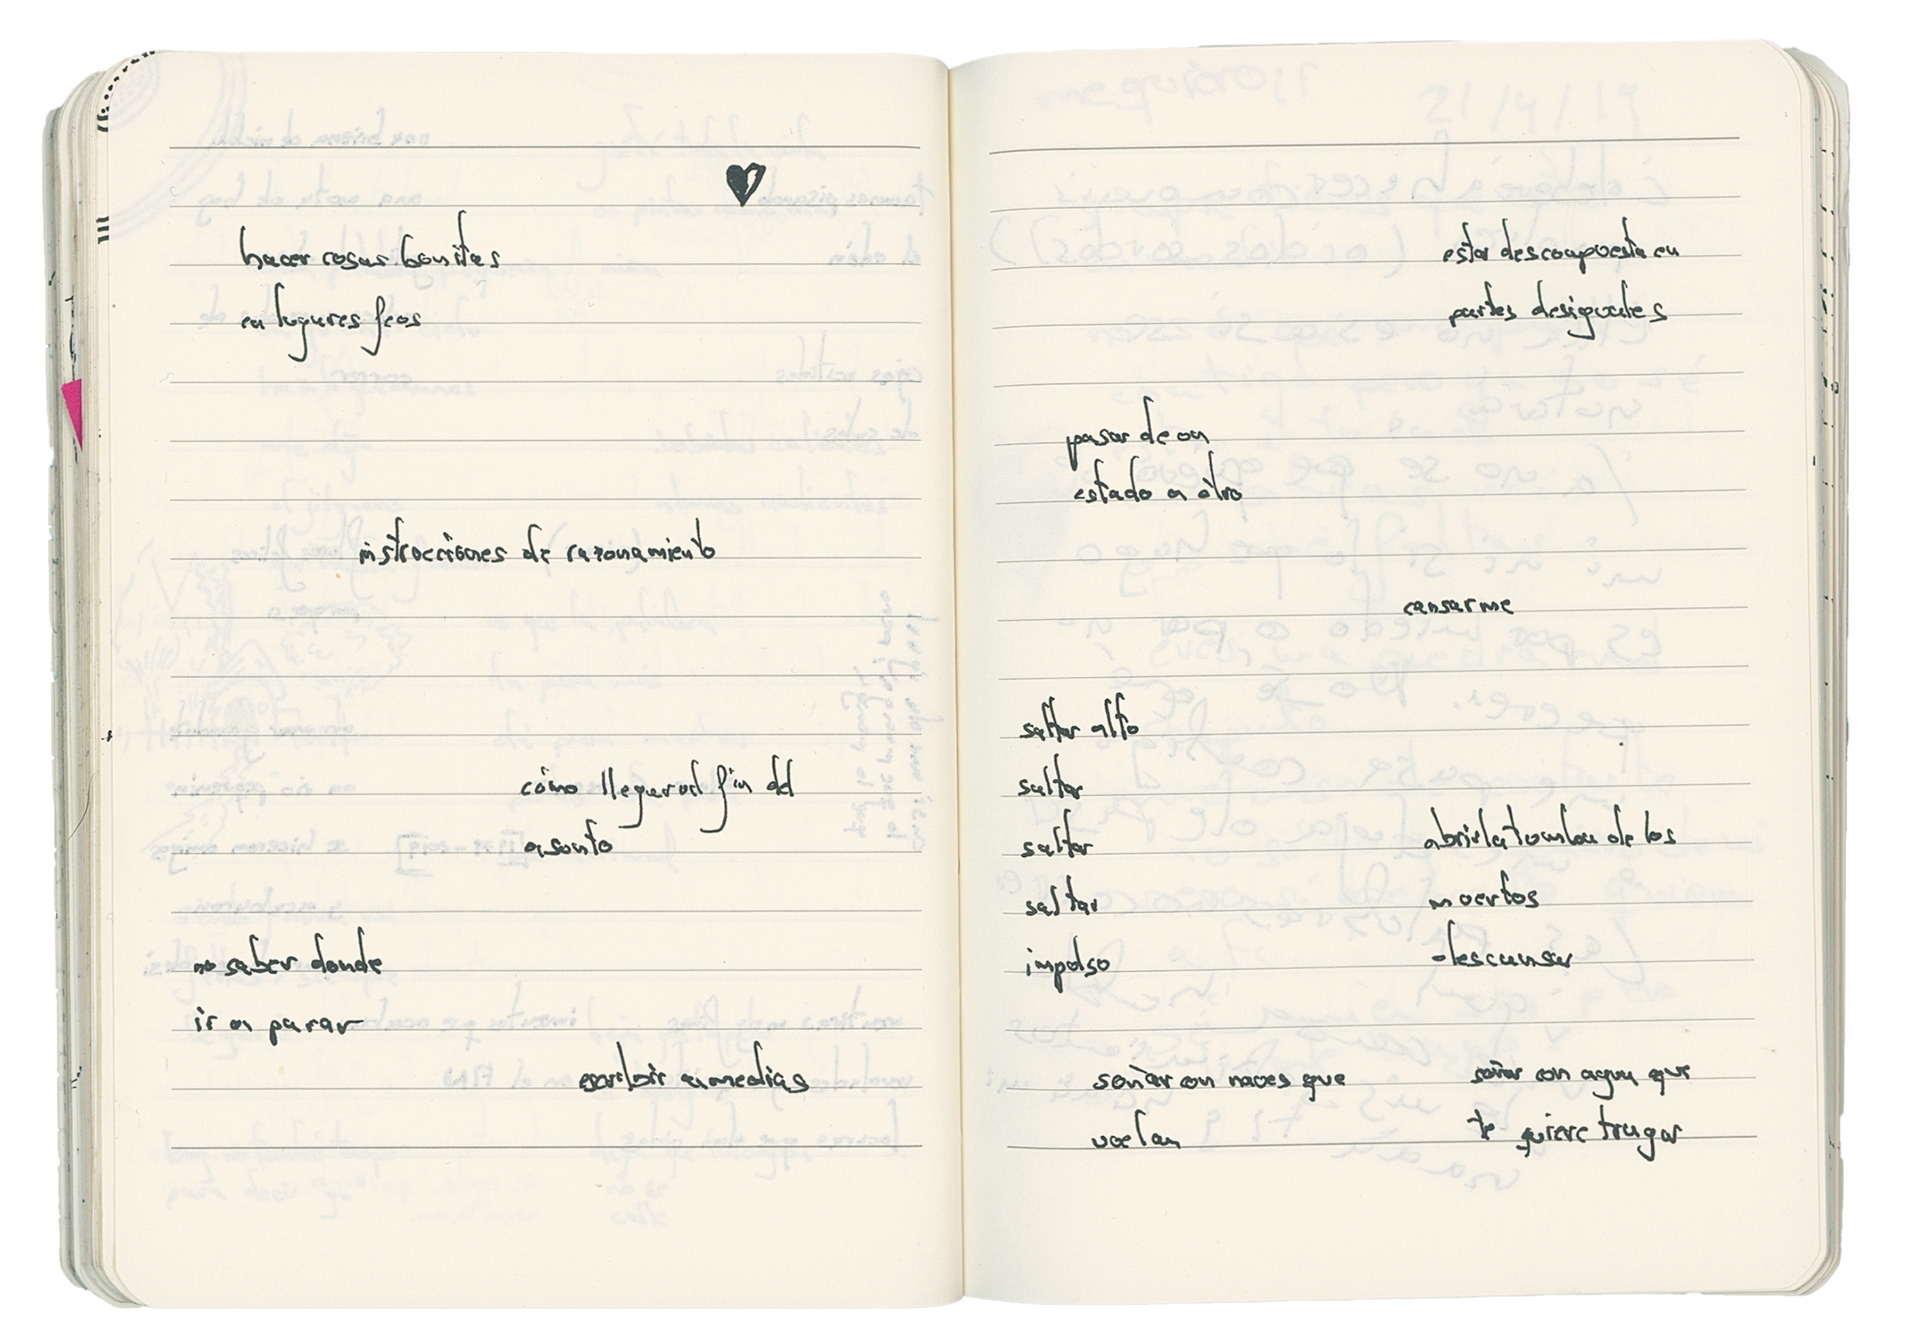 hacer cosas bonitas
en lugares feos
instrucciones de razonamiento
cómo llegar al fin del
asunto
no saber donde
ir a parar
escribir a medias
estar descompuesta en
partes desiguales
pasar de un
estado a otro
cansarme
saltar alto
saltar
saltar
saltar
impulso
abrir la tumba de los
muertos
descansar
soñar con naves que
vuelan
soñar con agua que
te quiere tragar